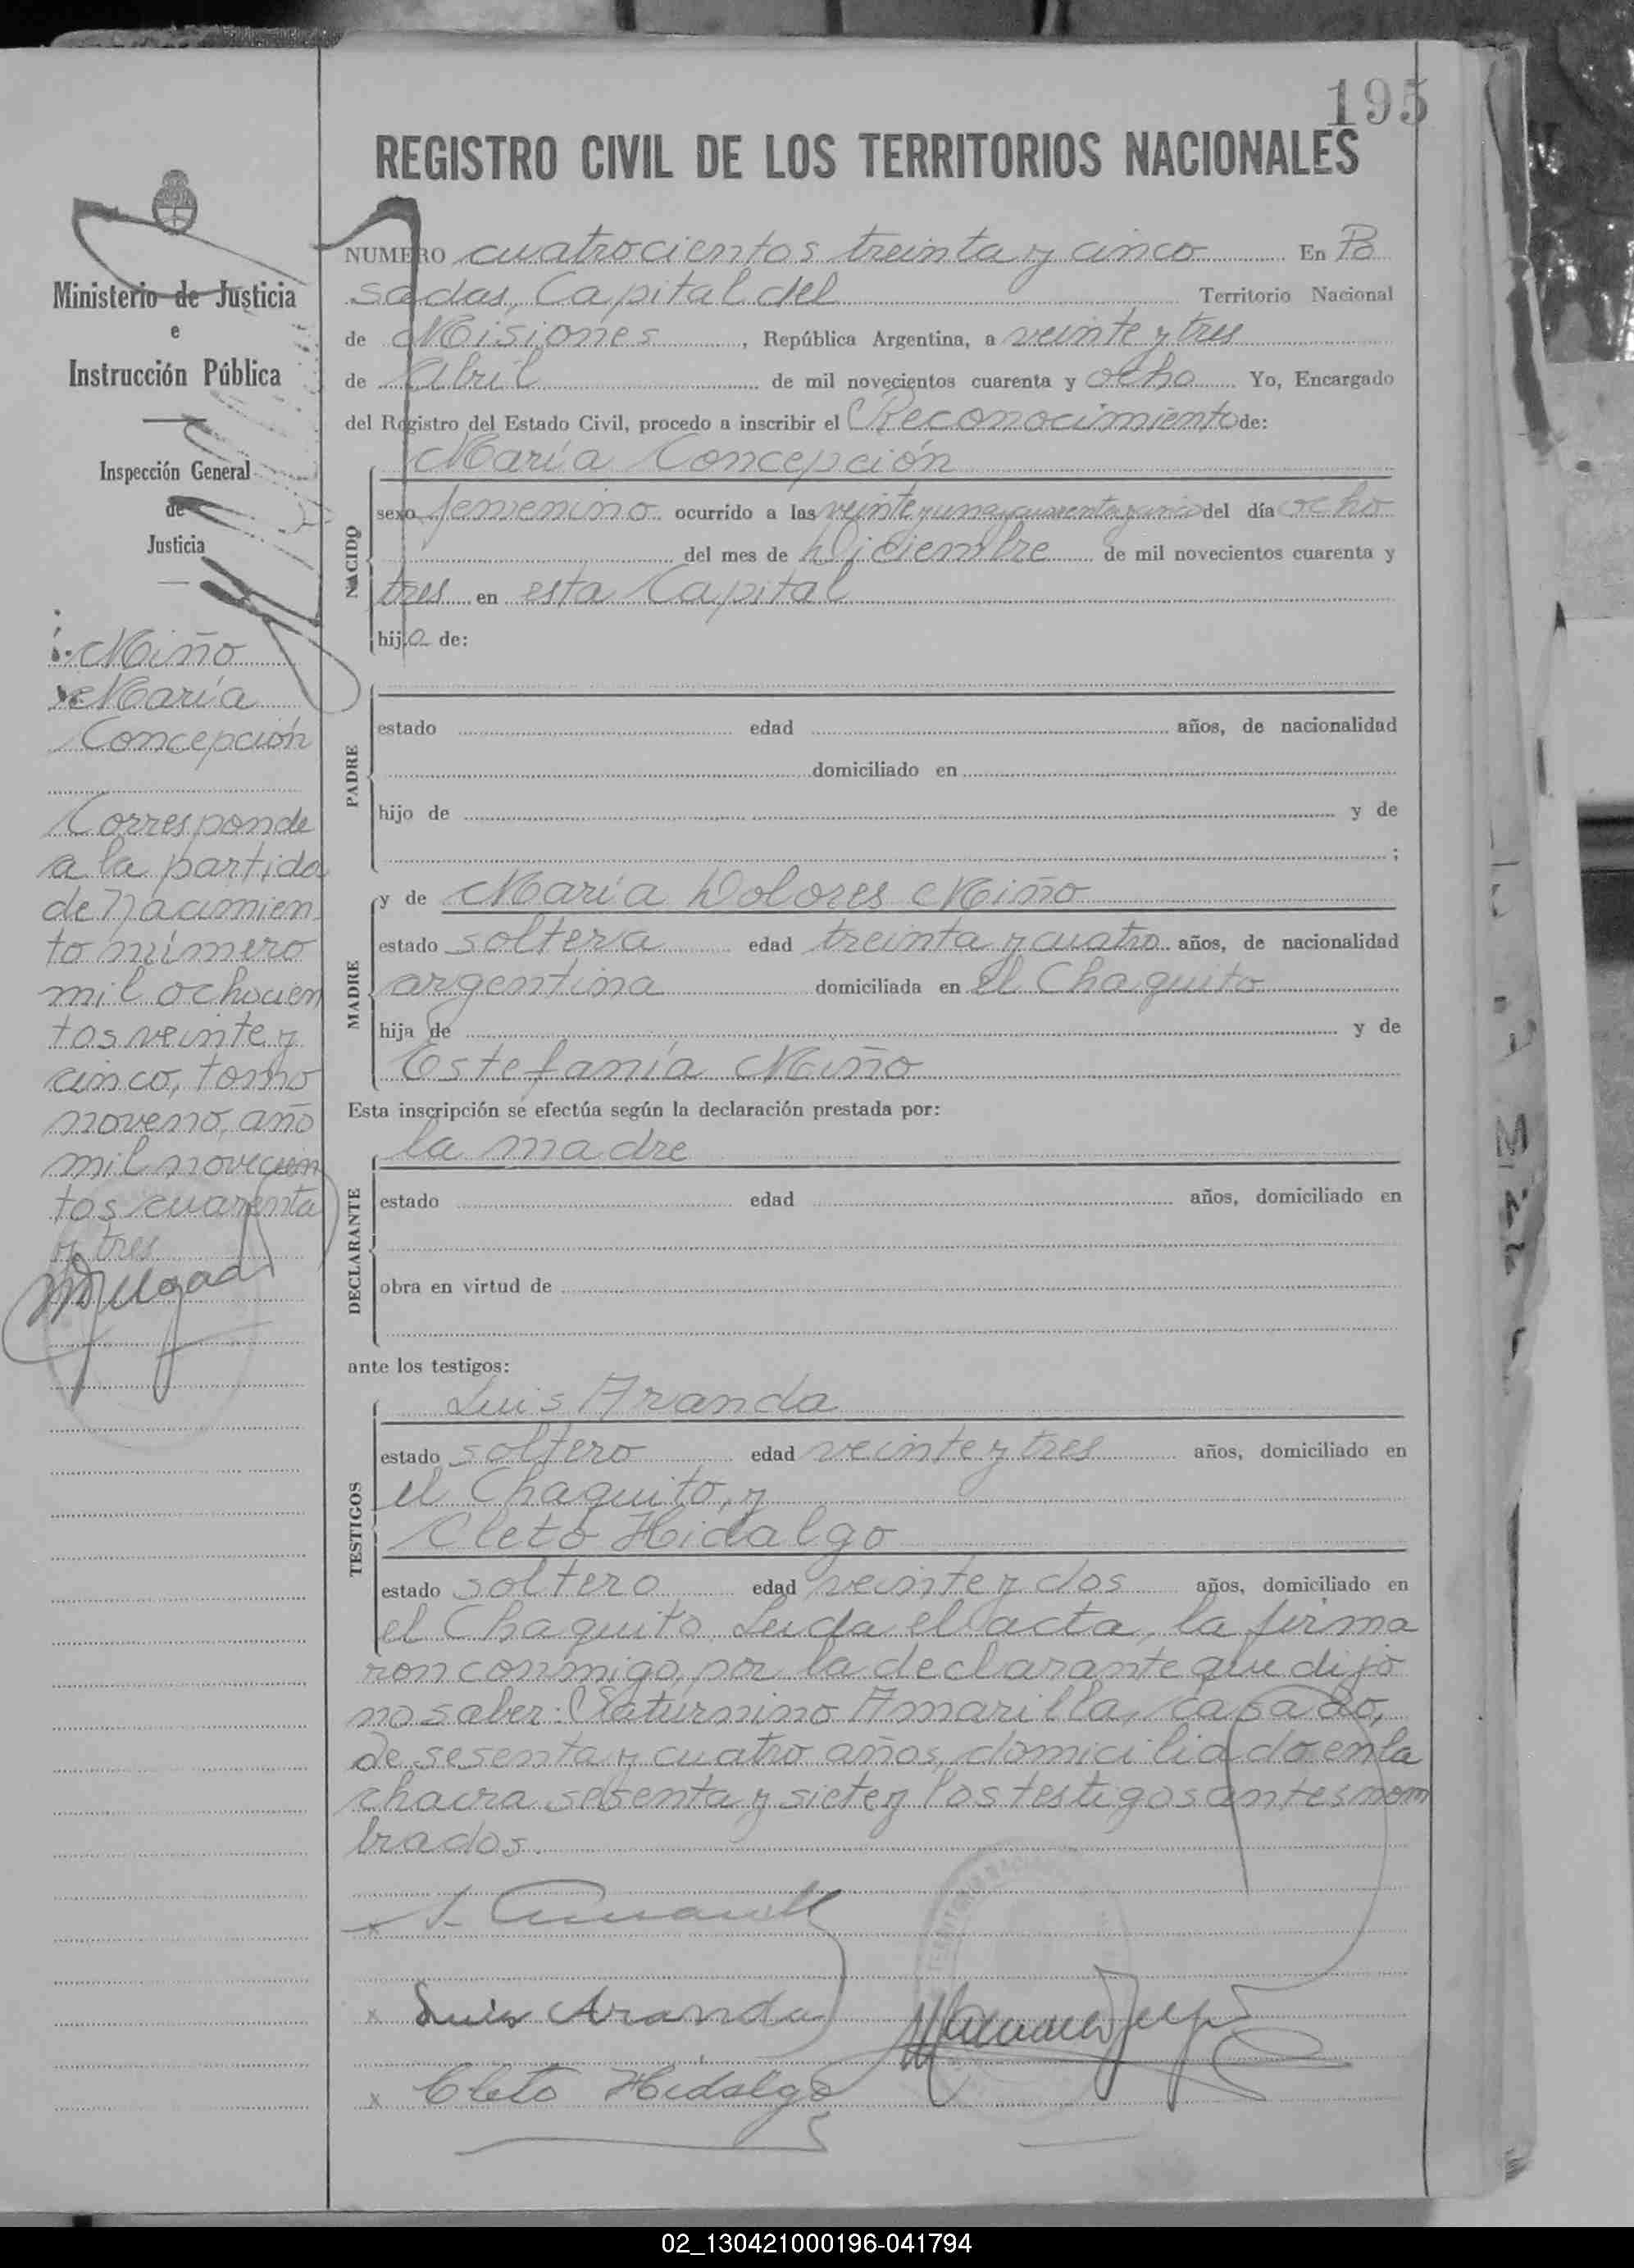 195
REGISTRO CIVIL DE LOS TERRITORIOS NACIONALES
NUMERO cuatrocientos treinta y cinco En Po
sadas, Capital del Territorio Nacional
de Misiones, República Argentina, a veinte y tres
de Abril de mil novecientos cuarenta y ocho Yo, Encargado
del Registro del Estado Civil, procedo a inscribir el Reconocimiento de:
NACIDO
María Concepción
sexo femenino ocurrido a las veinte y una y cuarenta y cinco del día ocho
del mes de Diciembre de mil novecientos cuarenta y
tres en esta Capital
hija de:
PADRE
estado edad años, de nacionalidad
domiciliado en
hijo de y de
;
MADRE
y de María Dolores Miño
estado soltera edad treinta y cuatro años, de nacionalidad
argentina domiciliada en el Chaquito
hija de y de
Estefanía Miño
Esta inscripción se efectúa según la declaración prestada por:
DECLARANTE
la madre
estado edad años, domiciliado en
obra en virtud de
ante los testigos:
TESTIGOS
Luis Aranda
estado soltero edad veinte y tres años, domiciliado en
el Chaquito, y
Cleto Hidalgo
estado soltero edad veinte y dos años, domiciliado en
el Chaquito. Leida el acta, la firma
ron conmigo, por la declarante que dijo
no saber: Saturnino Amarilla, casado,
de sesenta y cuatro años, domiciliado en la
chacra setenta y siete y los testigos antes nom
brados.
Luis Aranda
Cleto Hidalgo
Ministerio de Justicia
e
Instrucción Pública
Inspección General
de
Justicia
Miño
María
Concepción
Corresponde
a la partida
de nacimien
to número
mil ochocien
tos veinte y
cinco, tomo
noveno, año
mil novecien
tos cuarenta
y tres
02_130421000196-041794